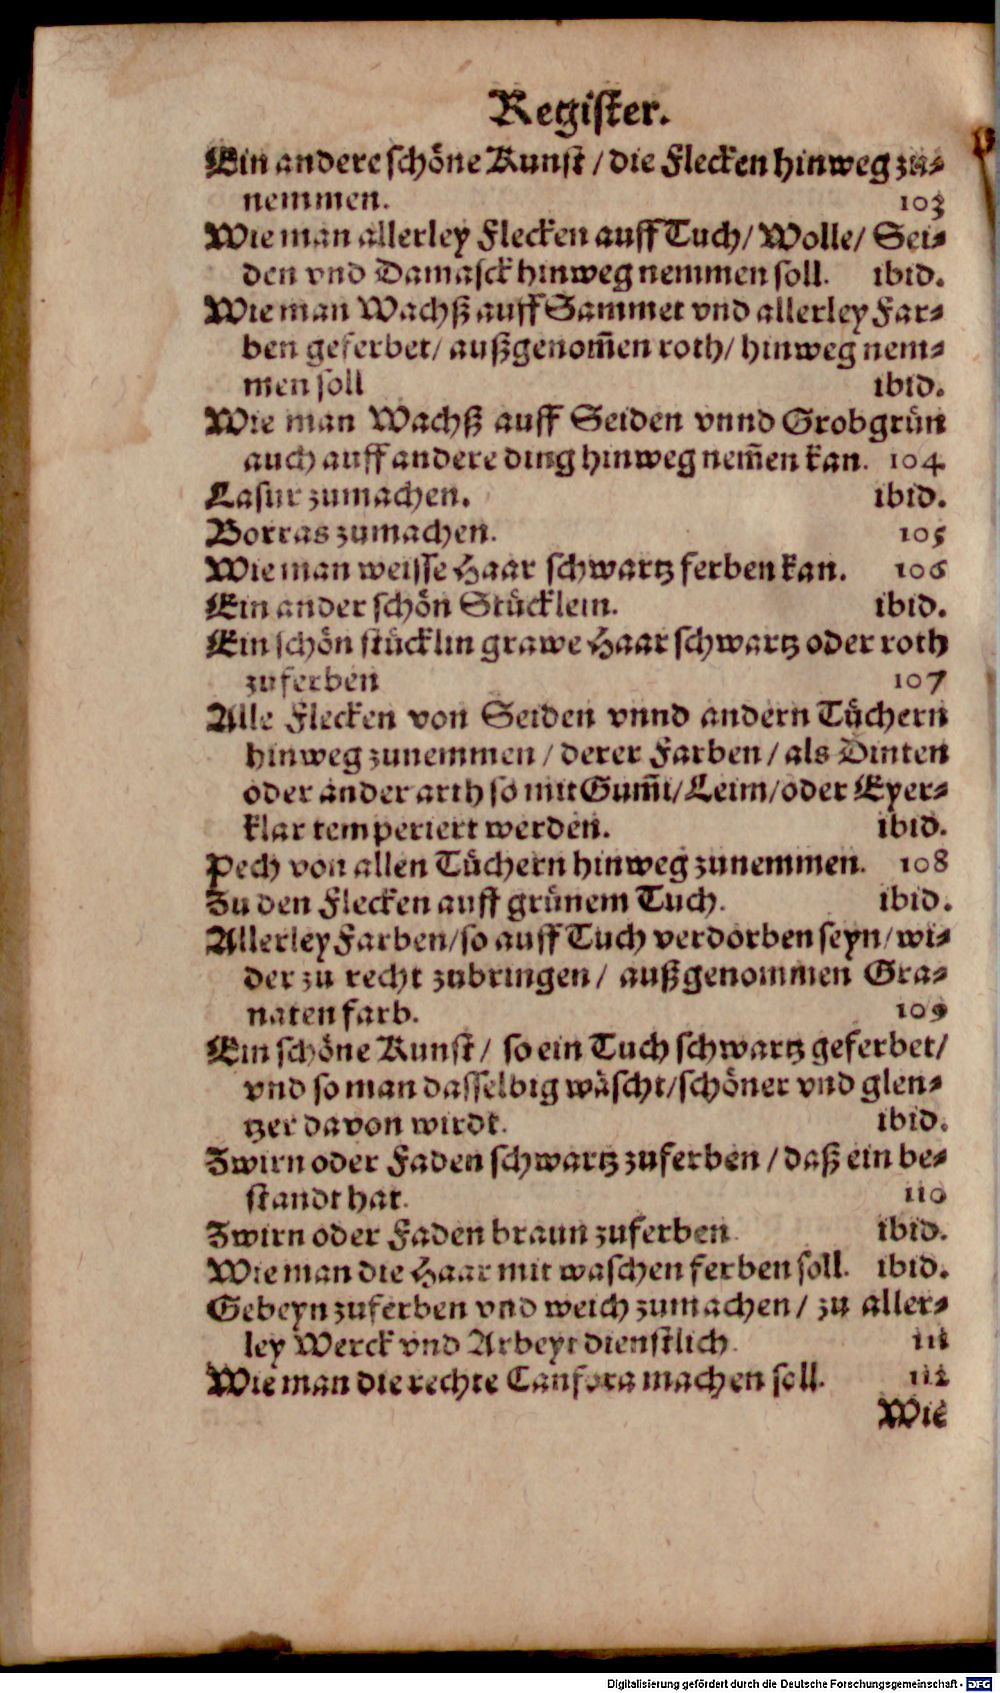 Register.
Ein andere schöne Kunst / die Flecken hinweg zu-
nemmen. 103
Wie man allerley Flecken auff Tuch / Wolle / Sei-
den vnd Damasck hinweg nemmen soll. ibid.
Wie man Wachß auff Sammet vnd allerley Far-
ben geferbet / außgenom̃en roth / hinweg nem-
men soll ibid.
Wie man Wachß auff Seiden vnnd Grobgrün
auch auff andere ding hinweg nem̃en kan. 104
Lasur zumachen. ibid.
Borras zumachen. 105
Wie man weisse Haar schwartz ferben kan. 106
Ein ander schön Stücklein. ibid.
Ein schön stücklin grawe Haar schwartz oder roth
zuferben 107
Alle Flecken von Seiden vnnd andern Tüchern
hinweg zunemmen / derer Farben / als Dinten
oder ander arth so mit Gum̃i / Leim / oder Eyer-
klar temperiert werden. ibid.
Pech von allen Tüchern hinweg zunemmen. 108
Zu den Flecken auff grünem Tuch. ibid.
Allerley Farben / so auff Tuch verdorben seyn / wi-
der zu recht zubringen / außgenommen Gra-
naten farb. 109
Ein schöne Kunst / so ein Tuch schwartz geferbet /
vnd so man dasselbig wäscht / schöner vnd glen-
tzer davon wirdt. ibid.
Zwirn oder Faden schwartz zuferben / daß ein be-
standt hat. 110
Zwirn oder Faden braun zuferben. ibid.
Wie man die Haar mit waschen ferben soll. ibid.
Gebeyn zuferben vnd weich zumachen / zu aller-
ley Werck vnd Arbeyt dienstlich. 111
Wie man die rechte Canfora machen soll. 112
Wie
Digitalisierung gefördert durch die Deutsche Forschungsgemeinschaft - DFG